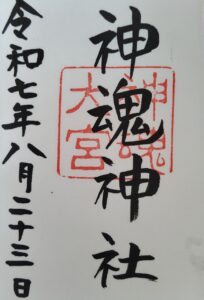 神魂神社
神魂
大宮
令和七年八月二十三日